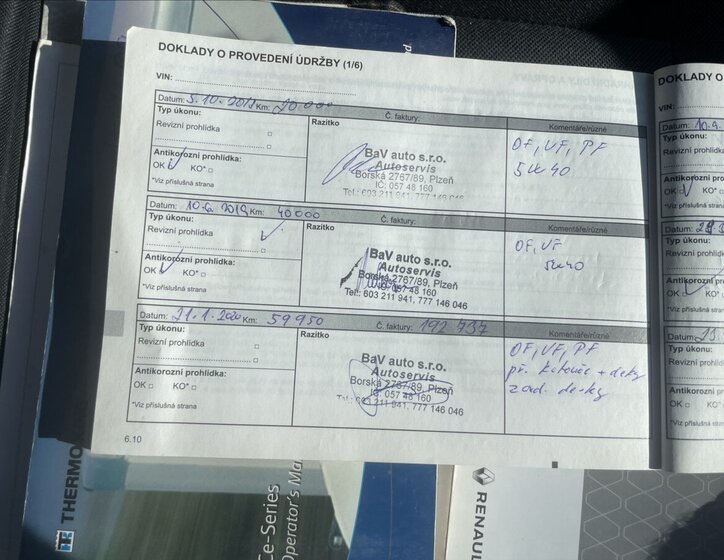 DOKLADY O PROVEDENÍ ÚDRŽBY (1/6)
VIN:
Datum: 5.10.2018 Km: 20 000
Č. faktury:
Typ úkonu:
Razítko
Komentáře/různé
Revizní prohlídka
Antikorozní prohlídka:
OK KO*
*Viz příslušná strana
BaV auto s.r.o.
Autoservis
Borská 2767/89, Plzeň
IČ: 057 48 160
Tel.: 603 211 941, 777 146 046
OF, VF, PF
5W40
Datum: 10.6.2019 Km: 40000
Č. faktury:
Typ úkonu:
Razítko
Komentáře/různé
Revizní prohlídka
Antikorozní prohlídka:
OK KO*
*Viz příslušná strana
BaV auto s.r.o.
Autoservis
Borská 2767/89, Plzeň
IČ: 057 48 160
Tel.: 603 211 941, 777 146 046
OF, VF
5W40
Datum: 21.1.2020 Km: 59950
Č. faktury: 192 737
Typ úkonu:
Razítko
Komentáře/různé
Revizní prohlídka
Antikorozní prohlídka:
OK KO*
*Viz příslušná strana
BaV auto s.r.o.
Autoservis
Borská 2767/89, Plzeň
IČ: 057 48 160
603 211 941, 777 146 046
OF, VF, PF
př. kotouče + desky
zad. desky
6.10
DOKLADY O
VIN:
Datum:
Typ úkonu:
Revizní prohlídka
Antikorozní
OK
*Viz příslušná
Datum:
Typ úkonu:
Revizní prohlídka
Antikorozní pro
OK KO*
*Viz příslušná
Datum:
Typ úkonu:
Revizní prohlídka
Antikorozní
OK KO
*Viz příslušná
THERMO
ce-Series
Operator's Ma
RENAUL